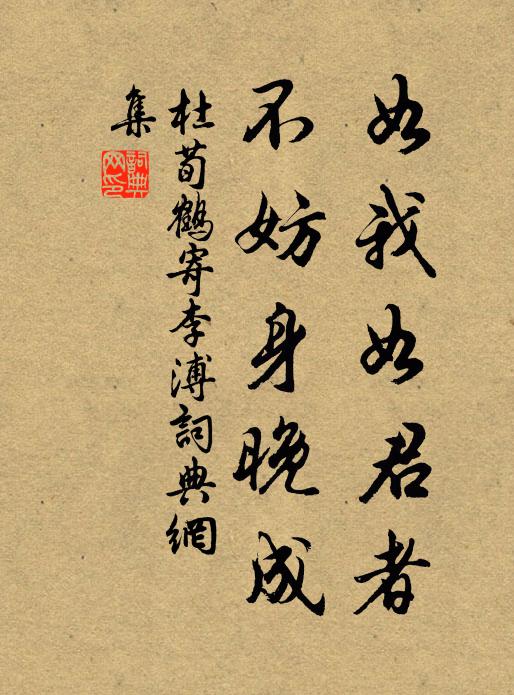 如我如君者
不妨身晚成
杜荀鶴寄李溥詞典網
集
詞典网印